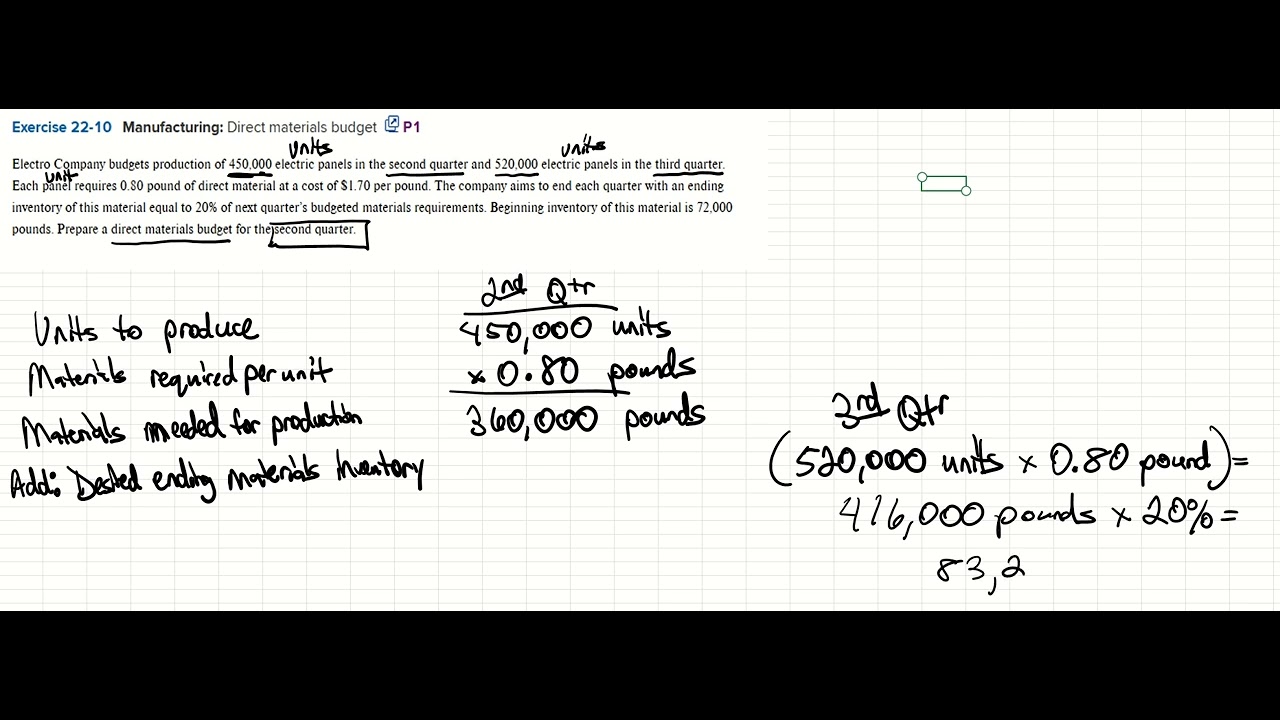 Exercise 22-10 Manufacturing: Direct materials budget P1
units units
Electro Company budgets production of 450,000 electric panels in the second quarter and 520,000 electric panels in the third quarter.
unit
Each panel requires 0.80 pound of direct material at a cost of $1.70 per pound. The company aims to end each quarter with an ending
inventory of this material equal to 20% of next quarter's budgeted materials requirements. Beginning inventory of this material is 72,000
pounds. Prepare a direct materials budget for the second quarter.
2nd Qtr
Units to produce 450,000 units
Materials required per unit x 0.80 pounds
Materials needed for production 360,000 pounds
Add: Desired ending materials inventory
3rd Qtr
(520,000 units x 0.80 pound) =
416,000 pounds x 20% =
83,2